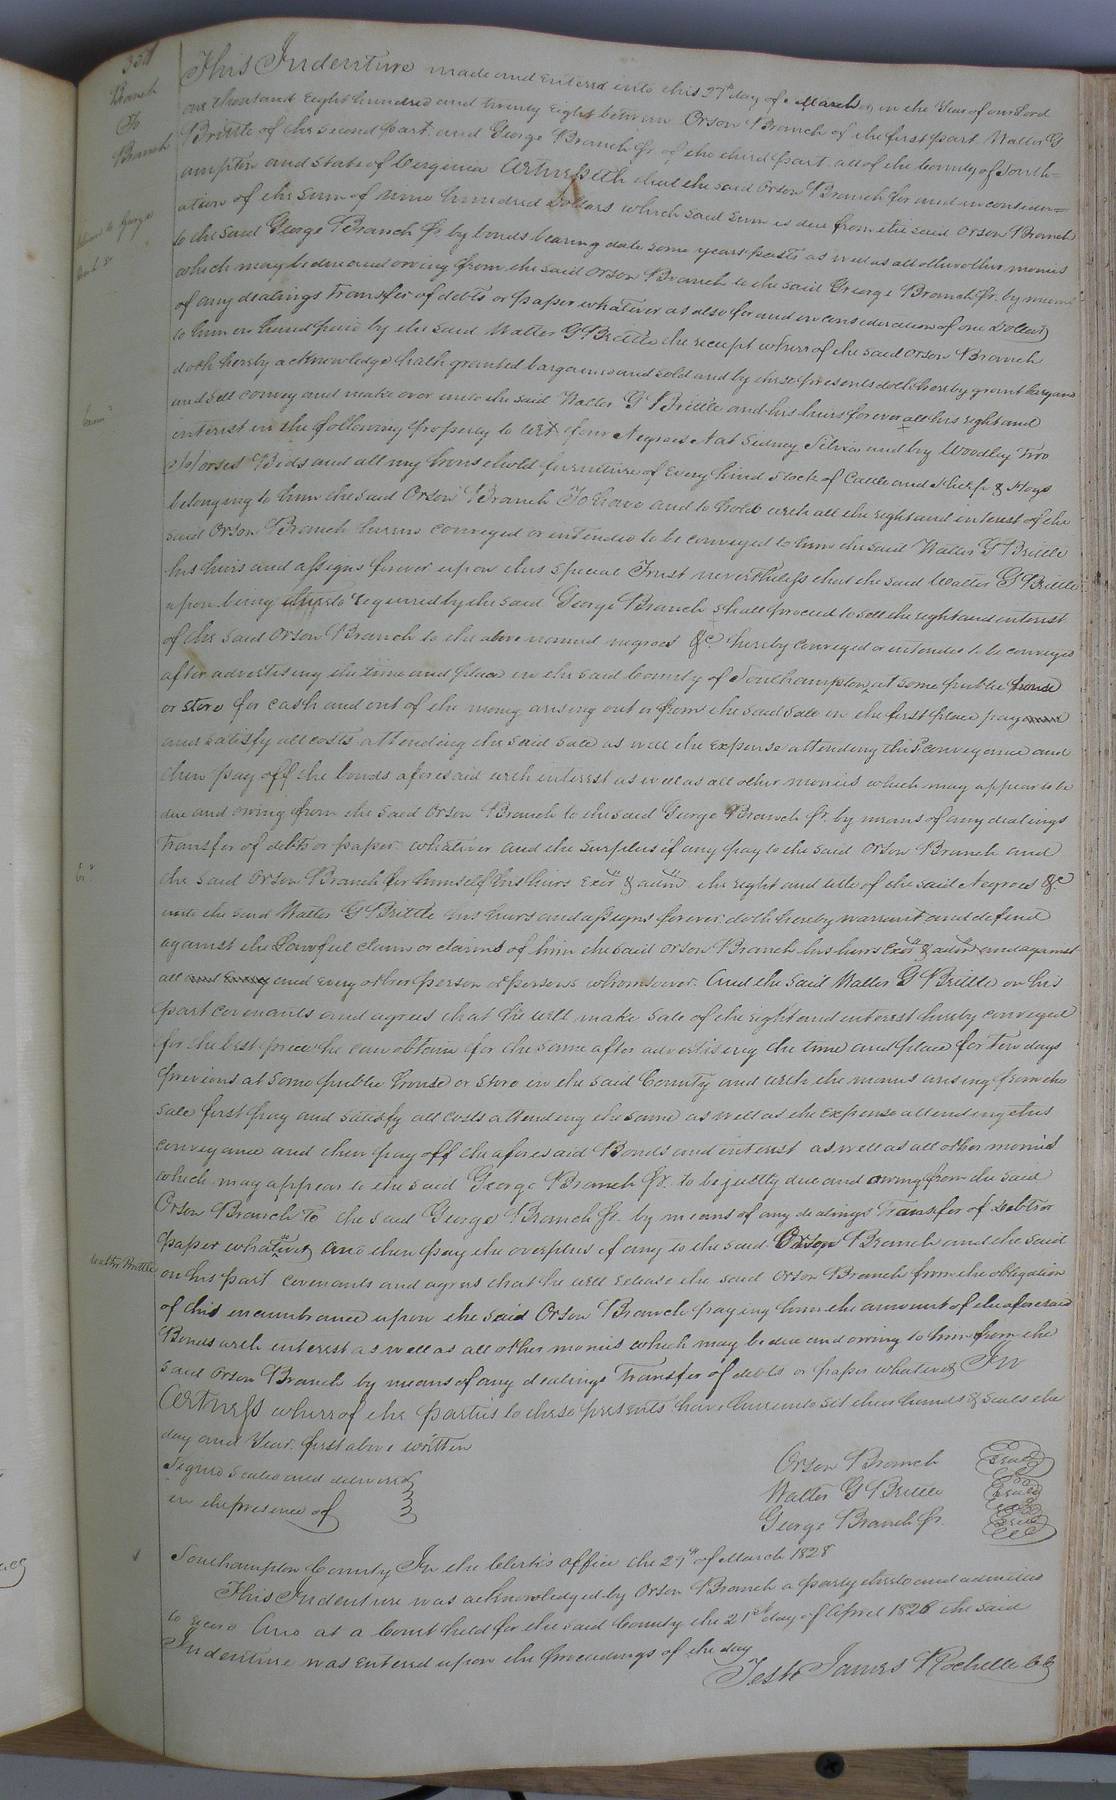 351
Branch
To
Branch
This Indenture made and entered into this 27th day of March in the Year of our Lord
one thousand Eight hundred and twenty Eight between Orson Branch of the first part Walter G
Brittle of the second part and George Branch Jr. of the third part all of the County of South=
ampton and State of Virginia Witnesseth that the said Orson Branch for and in consider=
ation of the sum of nine hundred Dollars which said sum is due from the said Orson Branch
to the said George Branch Jr. by bonds bearing date some years past as well as all other monies
which may be due and owing from the said Orson Branch to the said George Branch Jr. by means
of any dealings Transfer of debts or paper whatever as also for and in consideration of one Dollar
to him in hand paid by the said Walter G Brittle the receipt whereof the said Orson Branch
doth hereby acknowledge hath granted bargained and sold and by these presents doth hereby grant bargain
and sell convey and make over unto the said Walter G Brittle and his heirs forever all his right and
interest in the following property to wit four Negroes Nat Sidney Silvia and by Woodley Two
Horses Beds and all my household furniture of Every kind Stock of Cattle and Sheep & Hogs
belonging to him the said Orson Branch To have and to hold with all the right and interest of the
said Orson Branch herein conveyed or intended to be conveyed to him the said Walter G Brittle
his heirs and assigns forever upon this special Trust nevertheless that the said Walter G Brittle
upon being thereto required by the said George Branch shall proceed to sell the right and interest
of the said Orson Branch to the above named negroes &c. hereby conveyed or intended to be conveyed
after advertising the time and place in the said County of Southampton at some public house
or store for cash and out of the money arising out or from the said sale in the first place pay
and satisfy all costs attending the said sale as well the expense attending this conveyance and
then pay off the bonds aforesaid with interest as well as all other monies which may appear to be
due and owing from the said Orson Branch to the said George Branch Jr. by means of any dealings
Transfer of debts or paper whatever and the surplus if any pay to the said Orson Branch and
the said Orson Branch for himself his heirs Exrs & admrs the right and title of the said Negroes &c
unto the said Walter G Brittle his heirs and assigns forever doth hereby warrant and defend
against the Lawful claim or claims of him the said Orson Branch his heirs Exrs & admrs and against
all and Every and every other person or persons whomsoever. And the said Walter G Brittle on his
part covenants and agrees that he will make sale of the right and interest hereby conveyed
for the best price he can obtain for the same after advertising the time and place for Ten days
previous at some public house or store in the said County and with the monies arising from the
sale first pay and satisfy all costs attending the same as well as the expense attending this
conveyance and then pay off the aforesaid Bonds and interest as well as all other monies
which may appear to the said George Branch Jr. to be justly due and owing from the said
Orson Branch To the said George Branch Jr. by means of any dealings Transfer of debts or
paper whatever and then pay the overplus if any to the said Orson Branch and the said
Walter Brittle
on his part covenants and agrees that he will release the said Orson Branch from the obligation
of this incumbrance upon the said Orson Branch paying him the amount of the aforesaid
Bonds with interest as well as all other monies which may be due and owing to him from the
said Orson Branch by means of any dealings Transfer of debts or paper whatever In
Witness whereof the parties to these presents have hereunto set their hands & seals the
day and Year first above written
Signed sealed and delivered
in the presence of
Orson Branch Seal
Walter G Brittle Seal
George Branch Jr. Seal
Southampton County In the Clerk's office the 27th of March 1828
This Indenture was acknowledged by Orson Branch a party thereto and admitted
to record And at a Court held for the said County the 21st day of April 1828 the said
Indenture was Entered upon the proceedings of the day
Teste James Rochelle CC